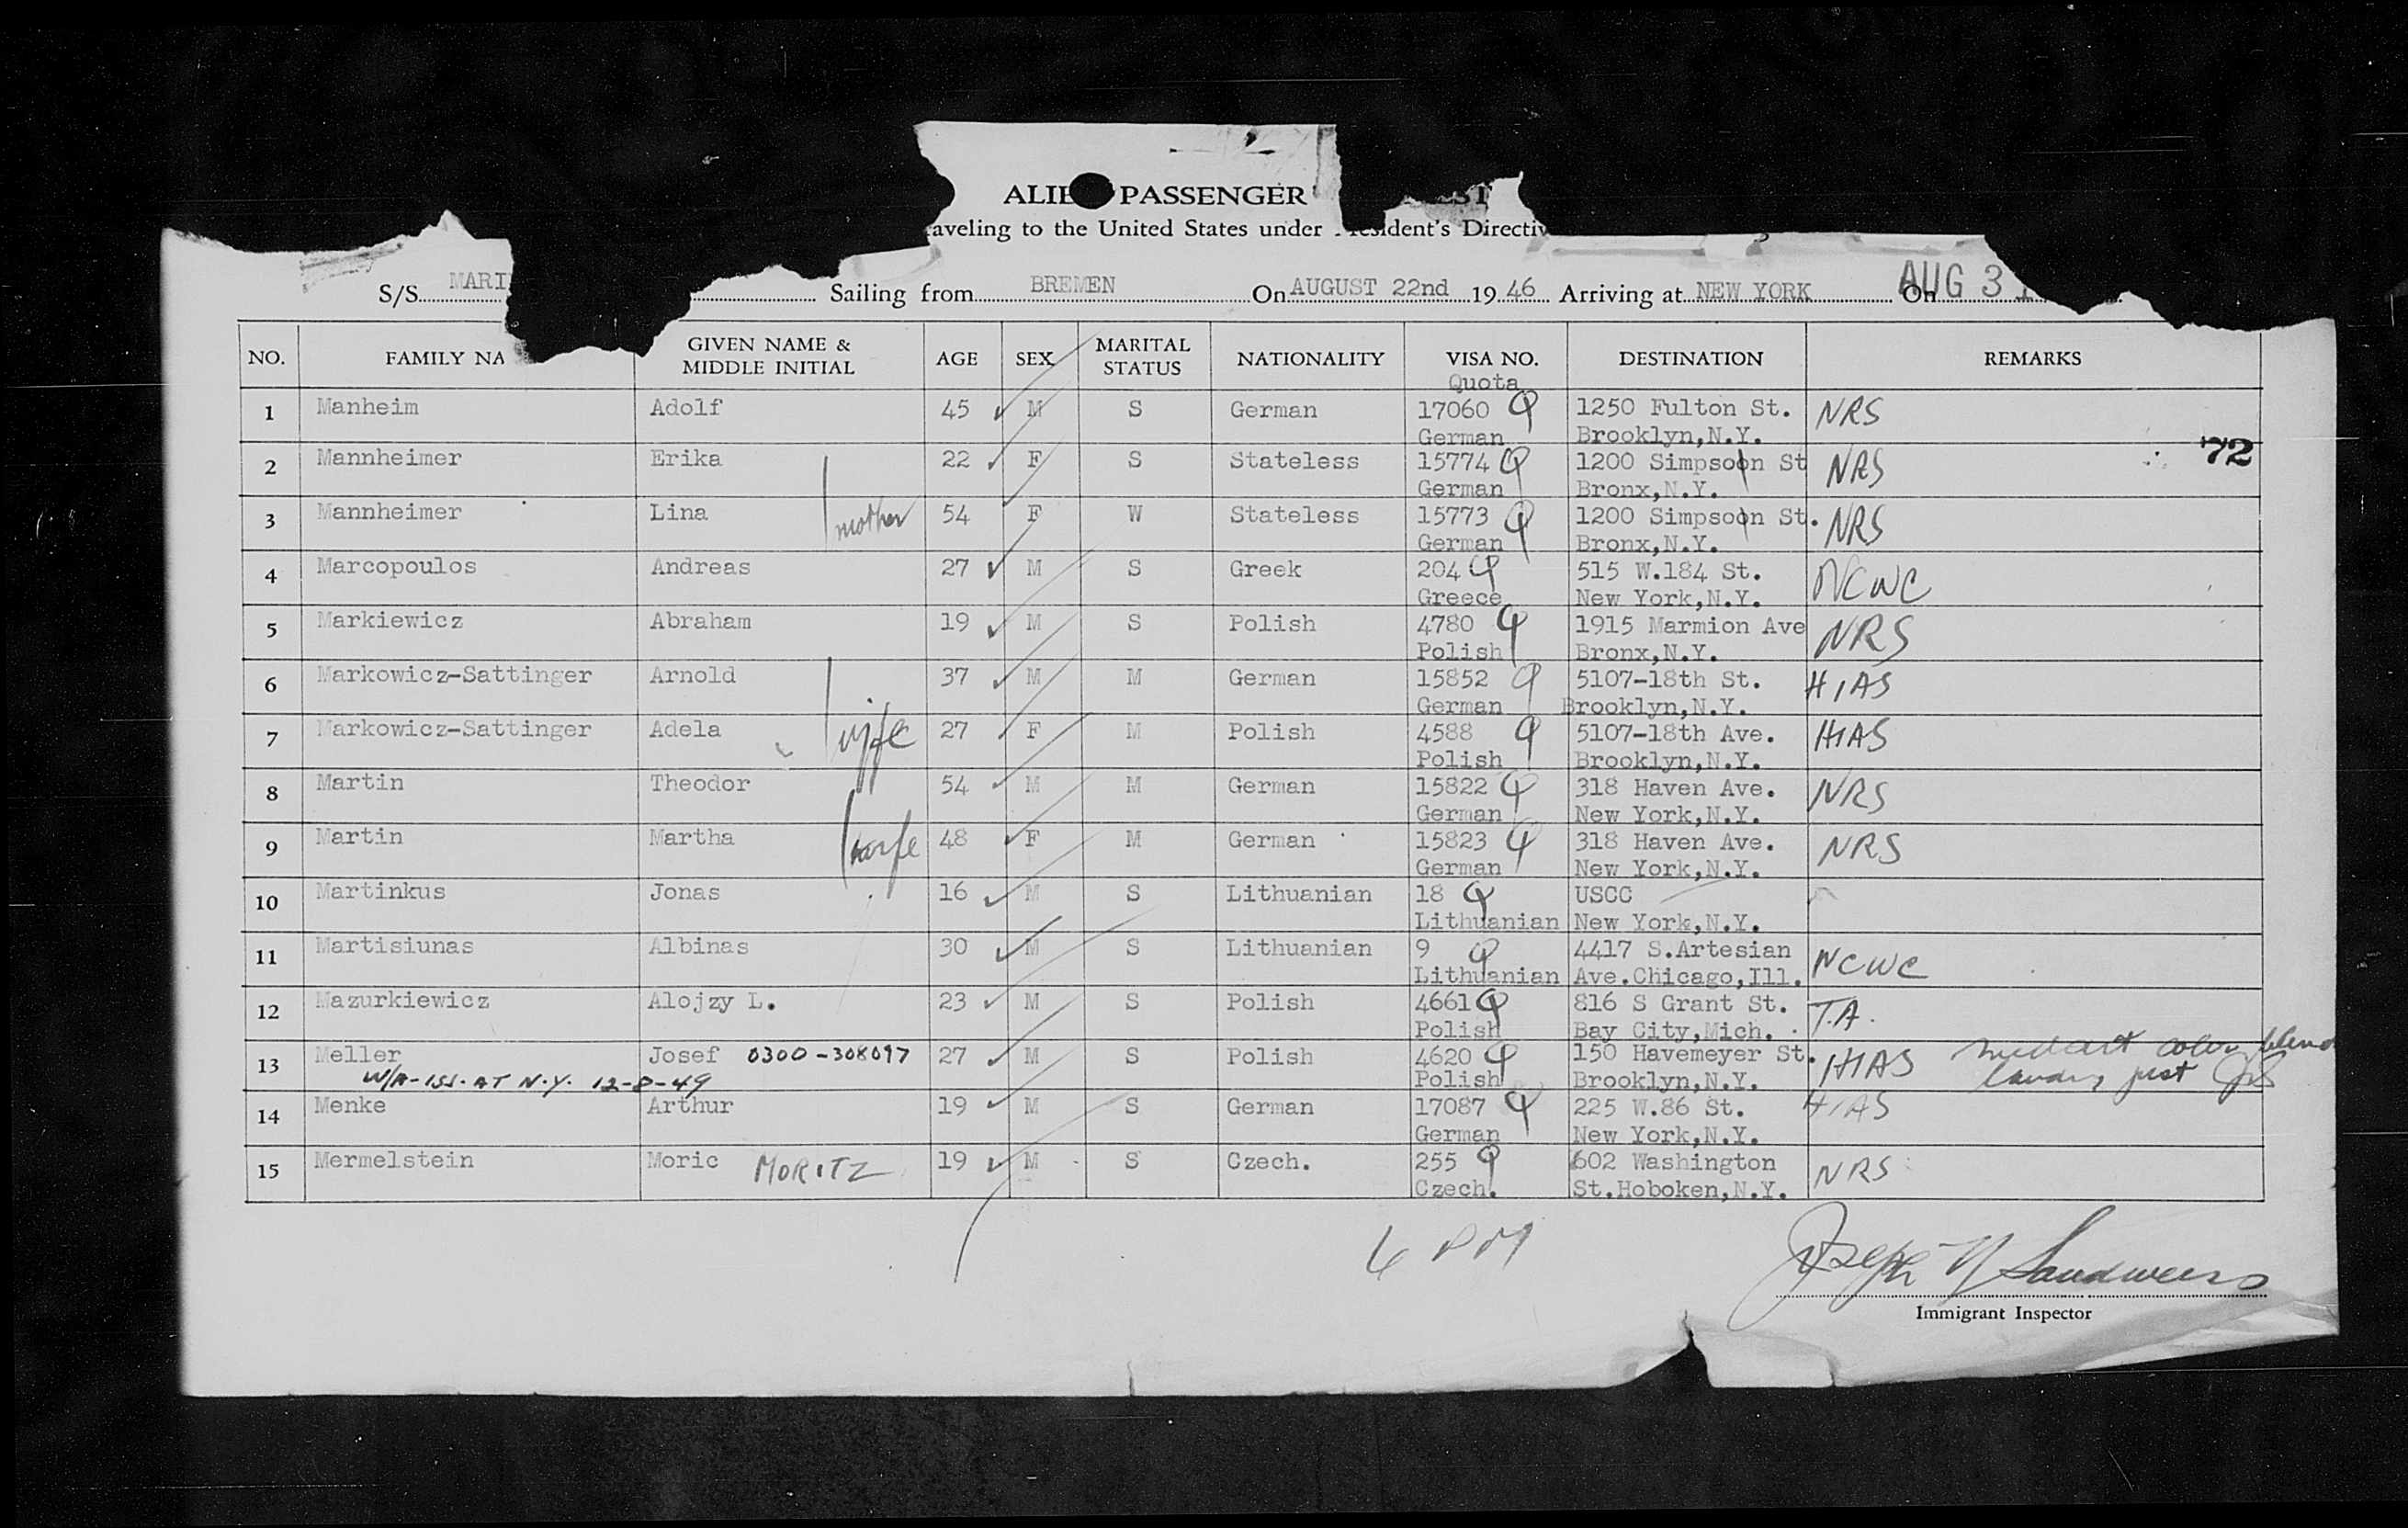 ALIE PASSENGER ST
aveling to the United States under sident's Directiv
S/S MARI Sailing from BREMEN On AUGUST 22nd 19 46 Arriving at NEW YORK On AUG 3
NO. FAMILY NA GIVEN NAME & MIDDLE INITIAL AGE SEX MARITAL STATUS NATIONALITY VISA NO. DESTINATION REMARKS
Quota
1 Manheim Adolf 45 M S German 17060 Q 1250 Fulton St. NRS
German Brooklyn,N.Y.
72
2 Mannheimer Erika 22 F S Stateless 15774 Q 1200 Simpsoon St NRS
German Bronx,N.Y.
3 Mannheimer Lina mother 54 F W Stateless 15773 Q 1200 Simpsoon St. NRS
German Bronx,N.Y.
4 Marcopoulos Andreas 27 M S Greek 204 Q 515 W.184 St. NCWC
Greece New York,N.Y.
5 Markiewicz Abraham 19 M S Polish 4780 Q 1915 Marmion Ave NRS
Polish Bronx,N.Y.
6 Markowicz-Sattinger Arnold 37 M M German 15852 Q 5107-18th St. HIAS
German Brooklyn,N.Y.
7 Markowicz-Sattinger Adela wife 27 F M Polish 4588 Q 5107-18th Ave. HIAS
Polish Brooklyn,N.Y.
8 Martin Theodor 54 M M German 15822 Q 318 Haven Ave. NRS
German New York,N.Y.
9 Martin Martha wife 48 F M German 15823 Q 318 Haven Ave. NRS
German New York,N.Y.
10 Martinkus Jonas 16 M S Lithuanian 18 Q USCC
Lithuanian New York,N.Y.
11 Martisiunas Albinas 30 M S Lithuanian 9 Q 4417 S.Artesian NCWC
Lithuanian Ave.Chicago,Ill.
12 Mazurkiewicz Alojzy L. 23 M S Polish 4661 Q 816 S Grant St. T.A.
Polish Bay City,Mich.
13 Meller Josef 0300-308097 27 M S Polish 4620 Q 150 Havemeyer St. HIAS color blind
W/A-ISS. AT N.Y. 12-8-49 Polish Brooklyn,N.Y. just
14 Menke Arthur 19 M S German 17087 Q 225 W.86 St. HIAS
German New York,N.Y.
15 Mermelstein Moric MORITZ 19 M S Czech. 255 Q 602 Washington NRS
Czech. St.Hoboken,N.Y.
6 PM
Joseph N Sandweiss
Immigrant Inspector